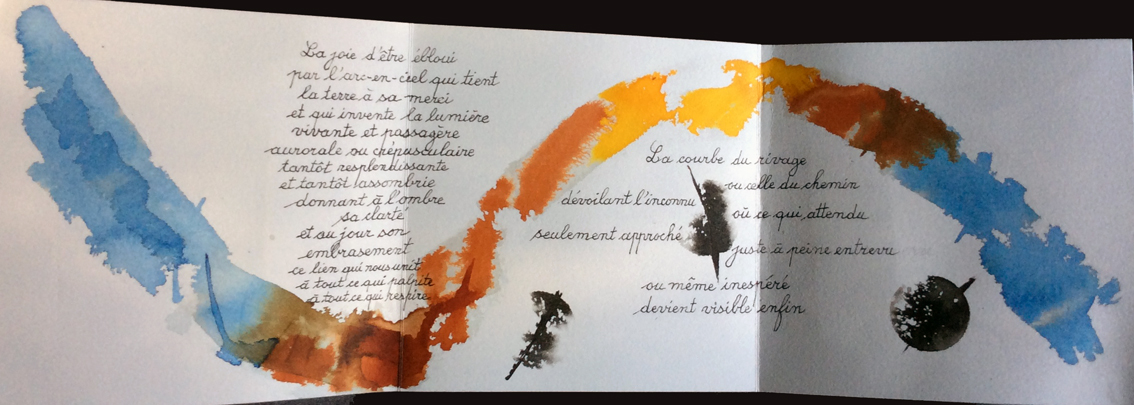 La joie d'être ébloui
par l'arc-en-ciel qui tient
la terre à sa merci
et qui invente la lumière
vivante et passagère
aurorale ou crépusculaire
tantôt resplendissante
et tantôt assombrie
donnant à l'ombre
sa clarté
et au jour son
embrasement
ce lien qui nous unit
à tout ce qui palpite
à tout ce qui respire
La courbe du rivage
ou celle du chemin
dévoilant l'inconnu
où ce qui, attendu
seulement approché
juste à peine entrevu
ou même inespéré
devient visible enfin